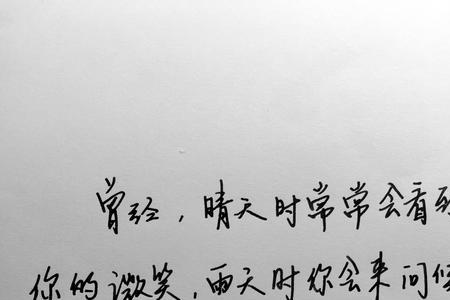 曾经，晴天时常常会看
你的微笑，雨天时你会来问